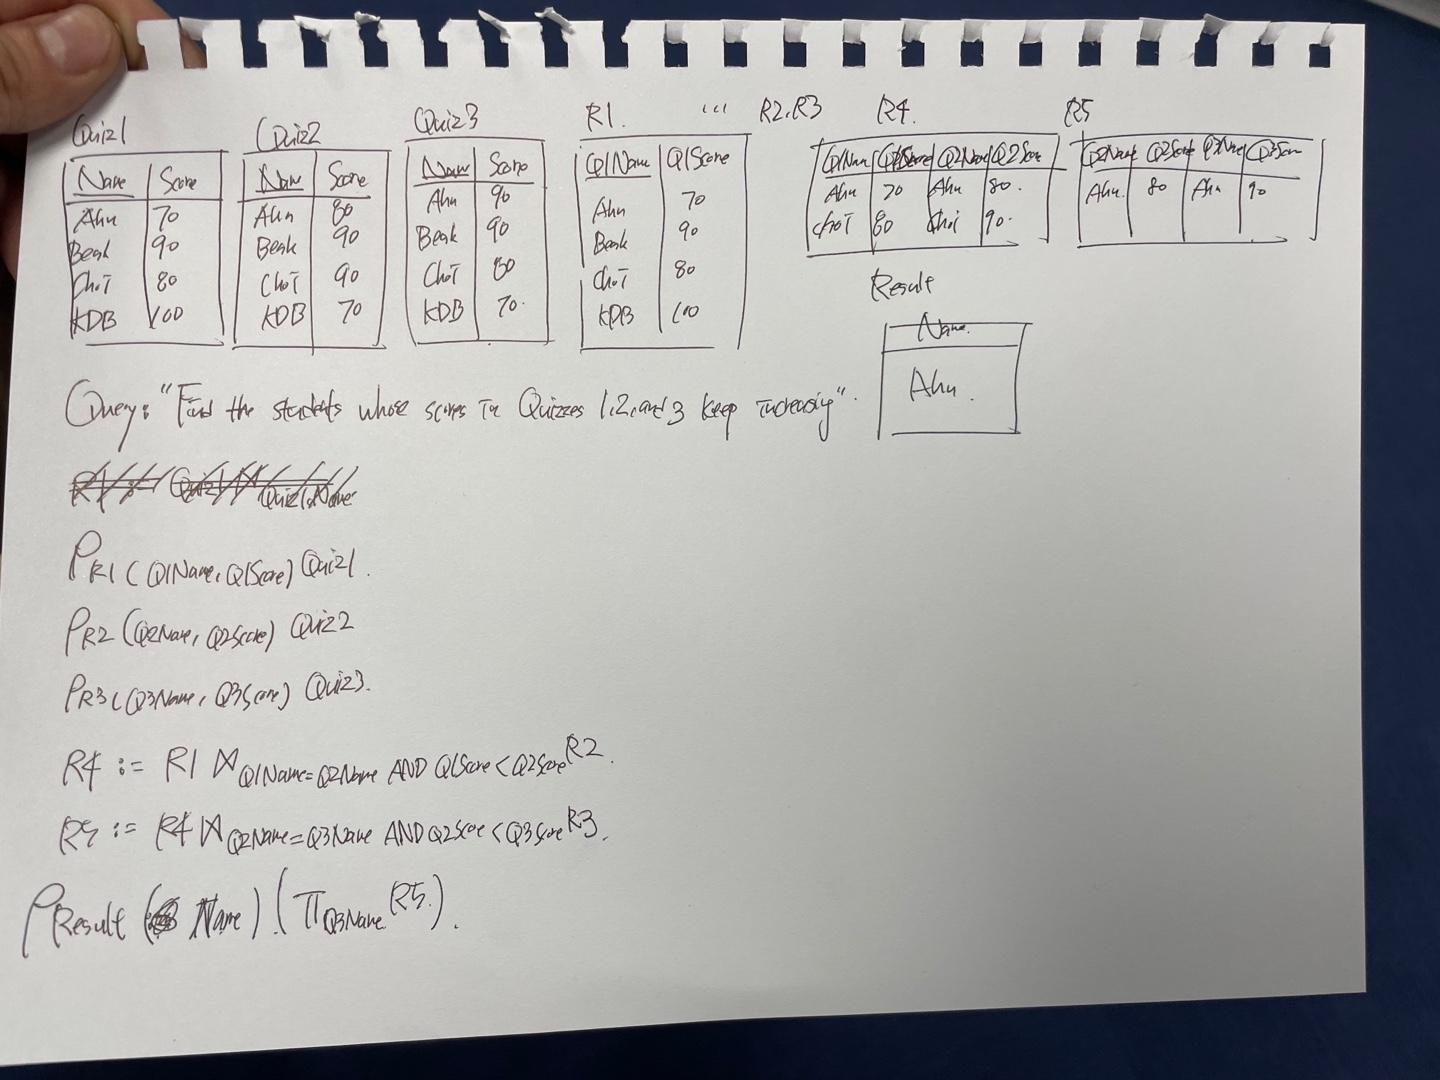 Quiz1
Name Score
Ahn 70
Beak 90
Choi 80
KDB 100
Quiz2
Name Score
Ahn 80
Beak 90
Choi 90
KDB 70
Quiz3
Name Score
Ahn 90
Beak 90
Choi 80
KDB 70
R1. ... R2.R3
Q1Name Q1Score
Ahn 70
Beak 90
Choi 80
KDB 100
R4.
Q1Name Q1Score Q2Name Q2Score
Ahn 70 Ahn 80
Choi 80 Choi 90
R5
Q2Name Q2Score Q3Name Q3Score
Ahn 80 Ahn 90
Result
Name
Ahn
Query: "Find the students whose scores in Quizzes 1, 2, and 3 keep increasing".
ρR1(Q1Name, Q1Score) Quiz1.
ρR2(Q2Name, Q2Score) Quiz2
ρR3(Q3Name, Q3Score) Quiz3.
R4 := R1 ⋈Q1Name=Q2Name AND Q1Score<Q2Score R2.
R5 := R4 ⋈Q2Name=Q3Name AND Q2Score<Q3Score R3.
ρResult (Name) (πQ3Name (R5)).